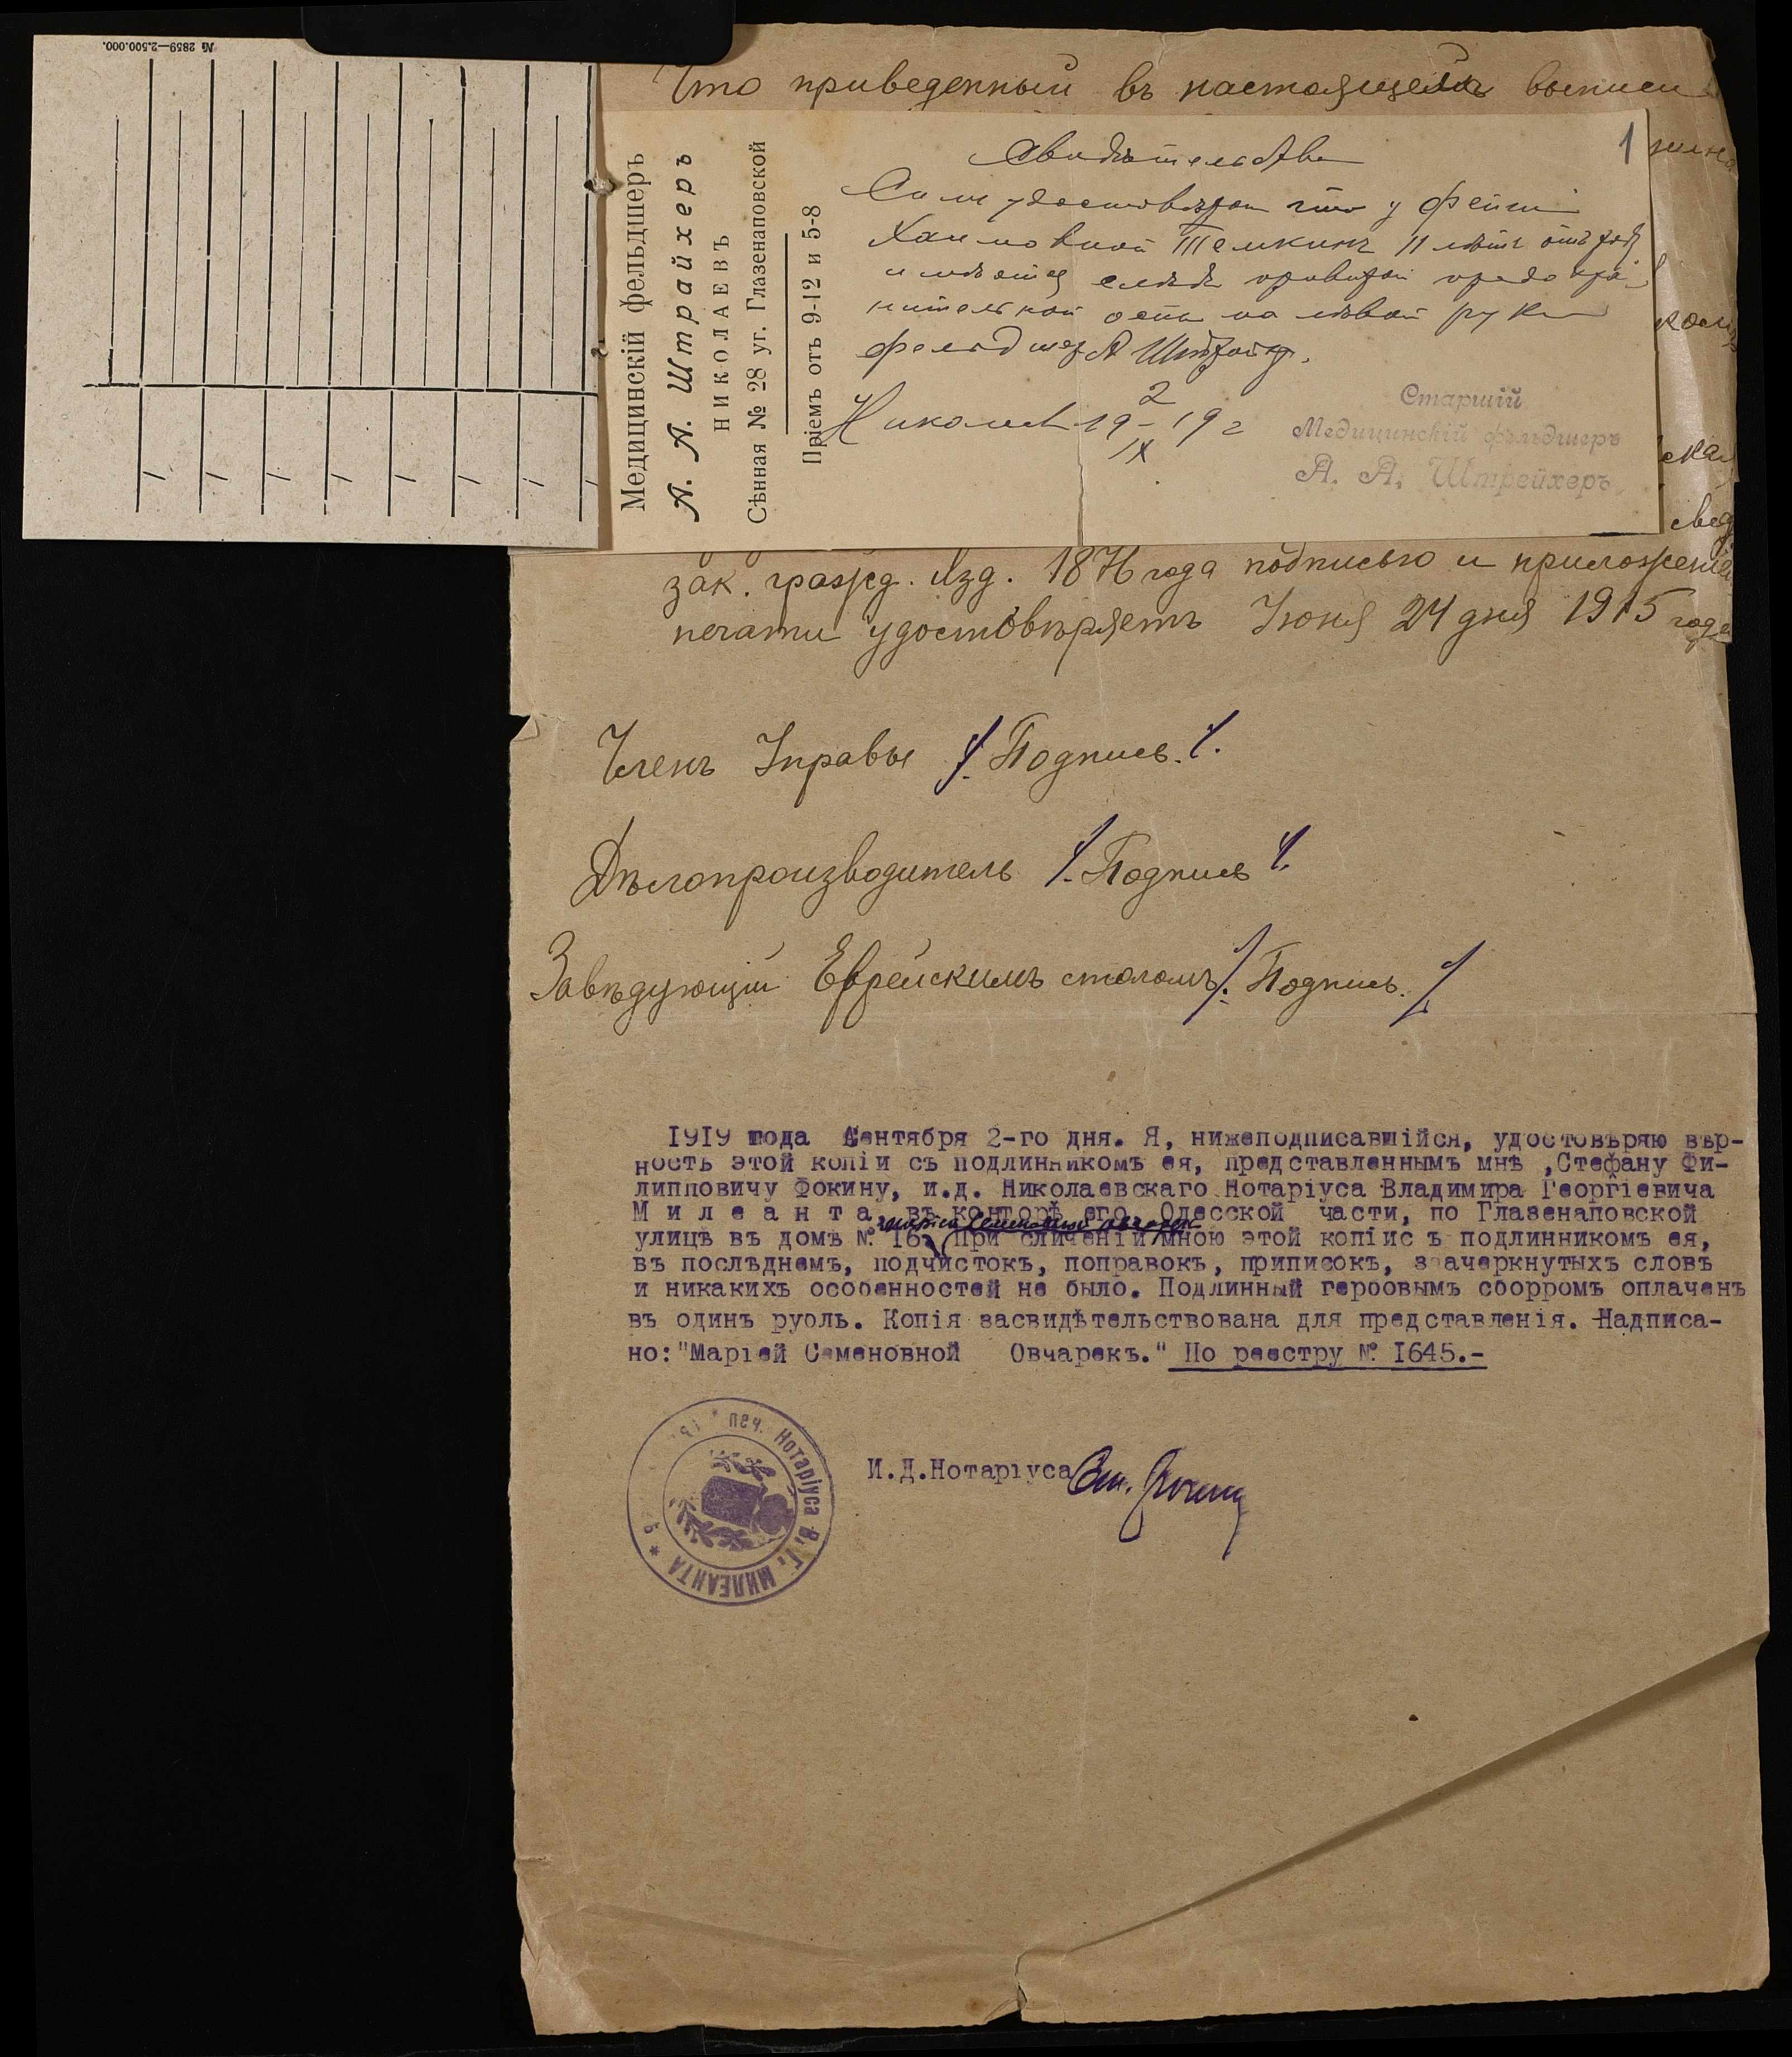 № 2859—2.500.000.
Что приведенный въ настоящей выписи
Медицинскій фельдшеръ
А. А. Штрайхеръ
НИКОЛАЕВЪ
Сѣнная № 28 уг. Глазенаповской
Пріемъ отъ 9-12 и 5-8
1
Свидѣтельство
Сим удостовѣряю что у Фейги
Хаимовной Темкинъ 11 лѣтъ отъ роду
имѣется слѣды привитой предохра-
нительной оспы на лѣвой руке
фельдшер А Штрайхер.
Николаев 19 2/IX 19 г
Старшій
Медицинскій фельдшеръ
А. А. Штрейхеръ
свед
зак. гражд. Изд. 1876 года подписью и приложеніе
печати удостовѣряетъ Іюня 24 дня 1915 года
Членъ Управы /. Подпись. /.
Дѣлопроизводитель /. Подпись /.
Завѣдующій Еврейскимъ столомъ /. Подпись. /.
1919 года Сентября 2-го дня. Я, нижеподписавшійся, удостовѣряю вѣр-
ность этой копіи съ подлинникомъ ея, представленнымъ мнѣ ,Стефану Фи-
липповичу Фокину, и.д. Николаевскаго Нотаріуса Владимира Георгіевича
М и л е а н т а, въ конторѣ его, Одесской части, по Глазенаповской
Маріей Семеновной Овчарек
улицѣ въ домѣ № 16, При сличеніи мною этой копіис ъ подлинникомъ ея,
въ послѣднемъ, подчистокъ, поправокъ, приписокъ, заачеркнутыхъ словъ
и никакихъ особенностей не было. Подлинный гербовымъ сборромъ оплаченъ
въ одинъ рубль. Копія засвидѣтельствована для представленія. Надписа-
но:"Маріей Семеновной Овчарекъ." По реестру № 1645.-
печ. Нотаріуса В. Г. МИЛЕАНТА
И.Д.Нотаріуса Ст. Фокин